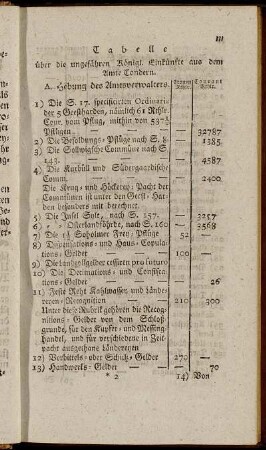 III
Tabelle
über die ungefähren Königl. Einkünfte aus dem
Amte Tondern.
A. Hebung des Amtsverwalters.
Courant
1) Die S. 17. specificirten Ordinari-
der 5 Geestharden, nämlich 61 Rthlr
Cour. vom Pflug, mithin von 537½
Pflügen — 32787
2) Die Besoldungs-Pflüge nach S. 8. — 1385
3) Die Sollwigsche Commüne nach S.
143. — 4587
4) Die Karbüll und Südergardische
Comm. — 2400
Die Krug- und Höckerey-Pacht der
Commünen ist unter den Geest-Har-
den besonders mit berechnet.
5) Die Insel Sylt, nach S. 157. — 3257
6) Osterlandföhrde, nach S. 160 — 3568
7) Die Soholmer Frey-Pflüge 52 —
8) Dispensations- und Haus-Copula-
tions-Gelder 100 —
9) Die Landgeldgelder cessiren pro futuro
10) Die Decimations- und Confisca-
tions-Gelder — 26
11) Feste Recht Kahlwasser und Lände-
reyen-Recognition 210 300
Unter diese Rubrik gehören die Recog-
nitions-Gelder von dem Schloß-
grunde, für den Kupfer- und Messing-
handel, und für verschiedene in Zeit-
pacht ausgethane Ländereyen
12) Verbittels- oder Schutz-Gelder 270 —
13) Handwerks-Gelder — 70
* 2 14) Von